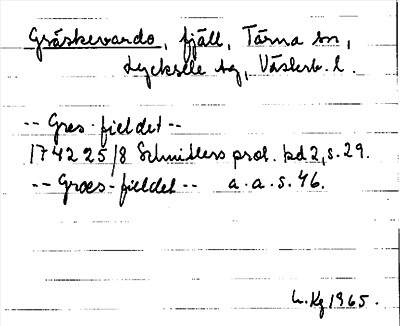 Gräskevardo, fjäll, Tärna sn,
Lycksele lg, Västerb. l.
-- Gres-fieldet --
1742 25/8 Schnitlers prot. bd 2, s. 29.
-- Græs-fieldet -- a.a.s. 46.
L. Kg 1965.